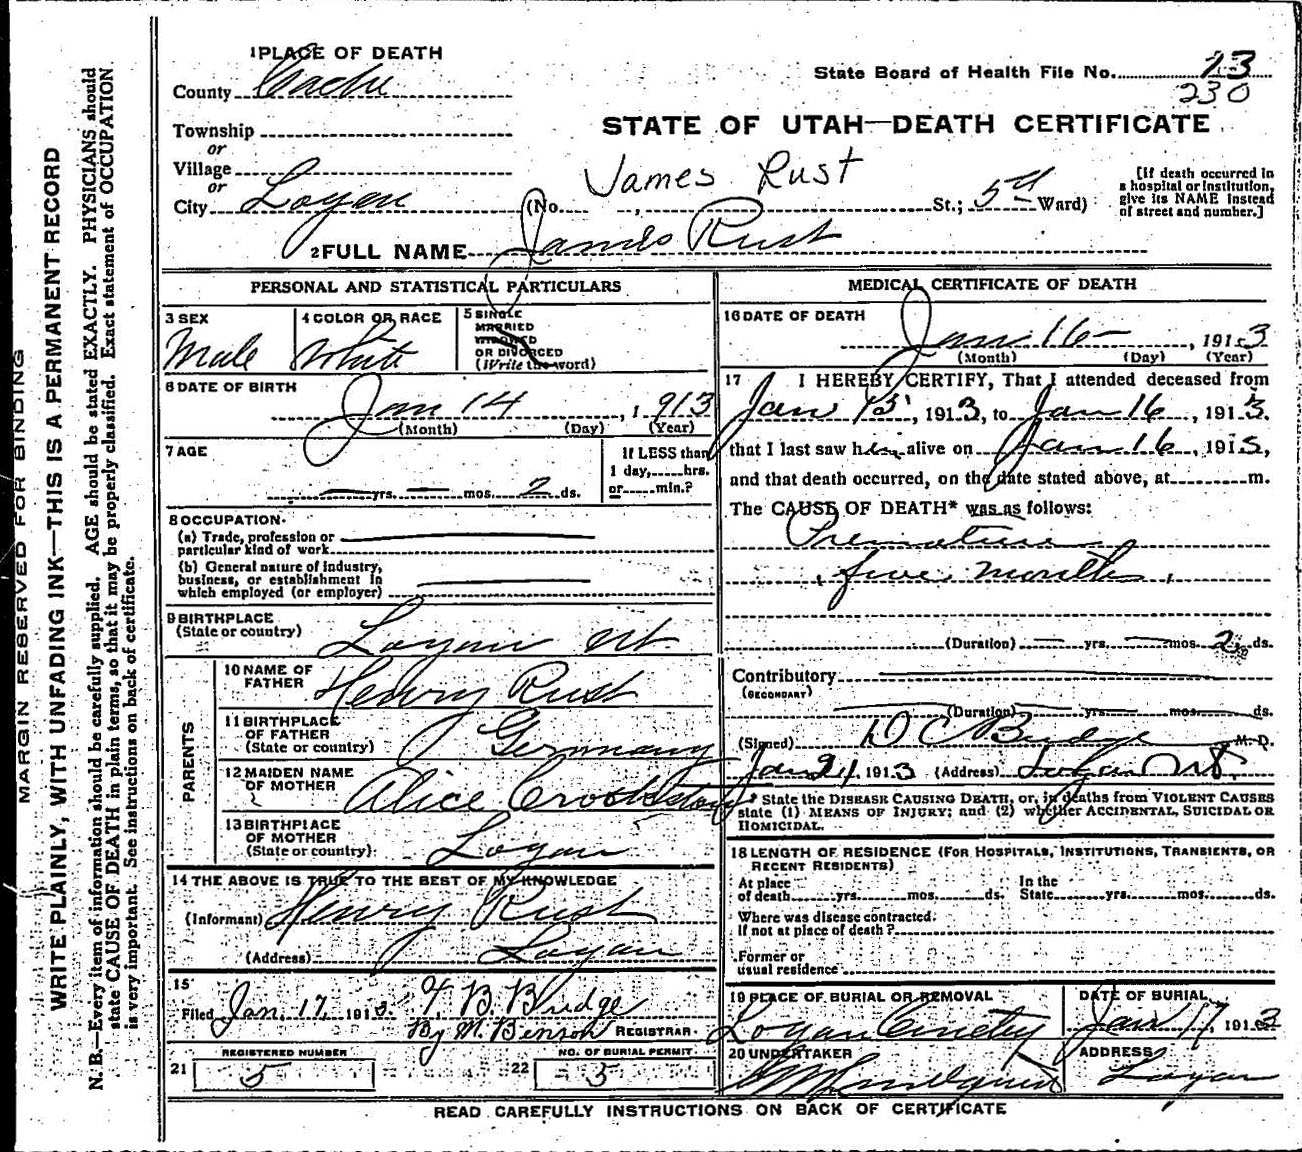 MARGIN RESERVED FOR BINDING
WRITE PLAINLY, WITH UNFADING INK—THIS IS A PERMANENT RECORD
N. B.—Every item of information should be carefully supplied. AGE should be stated EXACTLY. PHYSICIANS should
state CAUSE OF DEATH in plain terms, so that it may be properly classified. Exact statement of OCCUPATION
is very important. See instructions on back of certificate.
1 PLACE OF DEATH
County Cache
Township
or
Village
or
City Logan
State Board of Health File No. 13
230
STATE OF UTAH—DEATH CERTIFICATE
James Rust
(No. , St.; 5th Ward)
[If death occurred in
a hospital or institution,
give its NAME instead
of street and number.]
2 FULL NAME James Rust
PERSONAL AND STATISTICAL PARTICULARS
3 SEX
Male
4 COLOR OR RACE
White
5 SINGLE
MARRIED
WIDOWED
OR DIVORCED
(Write the word)
6 DATE OF BIRTH
Jan 14, 1913
(Month) (Day) (Year)
7 AGE
— yrs. — mos. 2 ds.
If LESS than
1 day, hrs.
or min.?
8 OCCUPATION
(a) Trade, profession or
particular kind of work
(b) General nature of industry,
business, or establishment in
which employed (or employer)
9 BIRTHPLACE
(State or country) Logan Ut.
PARENTS
10 NAME OF
FATHER Henry Rust
11 BIRTHPLACE
OF FATHER
(State or country) Germany
12 MAIDEN NAME
OF MOTHER Alice Crookston
13 BIRTHPLACE
OF MOTHER
(State or country) Logan
14 THE ABOVE IS TRUE TO THE BEST OF MY KNOWLEDGE
(Informant) Henry Rust
(Address) Logan
15
Filed Jan. 17, 1913. B Budge
By M. Benson REGISTRAR
REGISTERED NUMBER
21 5
NO. OF BURIAL PERMIT
22 5
MEDICAL CERTIFICATE OF DEATH
16 DATE OF DEATH
Jan 16, 1913
(Month) (Day) (Year)
17 I HEREBY CERTIFY, That I attended deceased from
Jan 15, 1913, to Jan 16, 1913.
that I last saw him alive on Jan 16, 1913,
and that death occurred, on the date stated above, at m.
The CAUSE OF DEATH* was as follows:
Premature
five months
(Duration) — yrs. — mos. 2 ds.
Contributory
(SECONDARY)
(Duration) yrs. mos. ds.
(Signed) D C Budge M. D.
Jan 21 1913 (Address) Logan Ut.
* State the DISEASE CAUSING DEATH, or, in deaths from VIOLENT CAUSES
state (1) MEANS OF INJURY; and (2) whether ACCIDENTAL, SUICIDAL OR
HOMICIDAL.
18 LENGTH OF RESIDENCE (FOR HOSPITALS, INSTITUTIONS, TRANSIENTS, OR
RECENT RESIDENTS)
At place
of death yrs. mos. ds.
In the
State yrs. mos. ds.
Where was disease contracted,
If not at place of death?
Former or
usual residence
19 PLACE OF BURIAL OR REMOVAL
Logan Cemetry
DATE OF BURIAL
Jan 17, 1913
20 UNDERTAKER
Lindquist
ADDRESS
Logan
READ CAREFULLY INSTRUCTIONS ON BACK OF CERTIFICATE